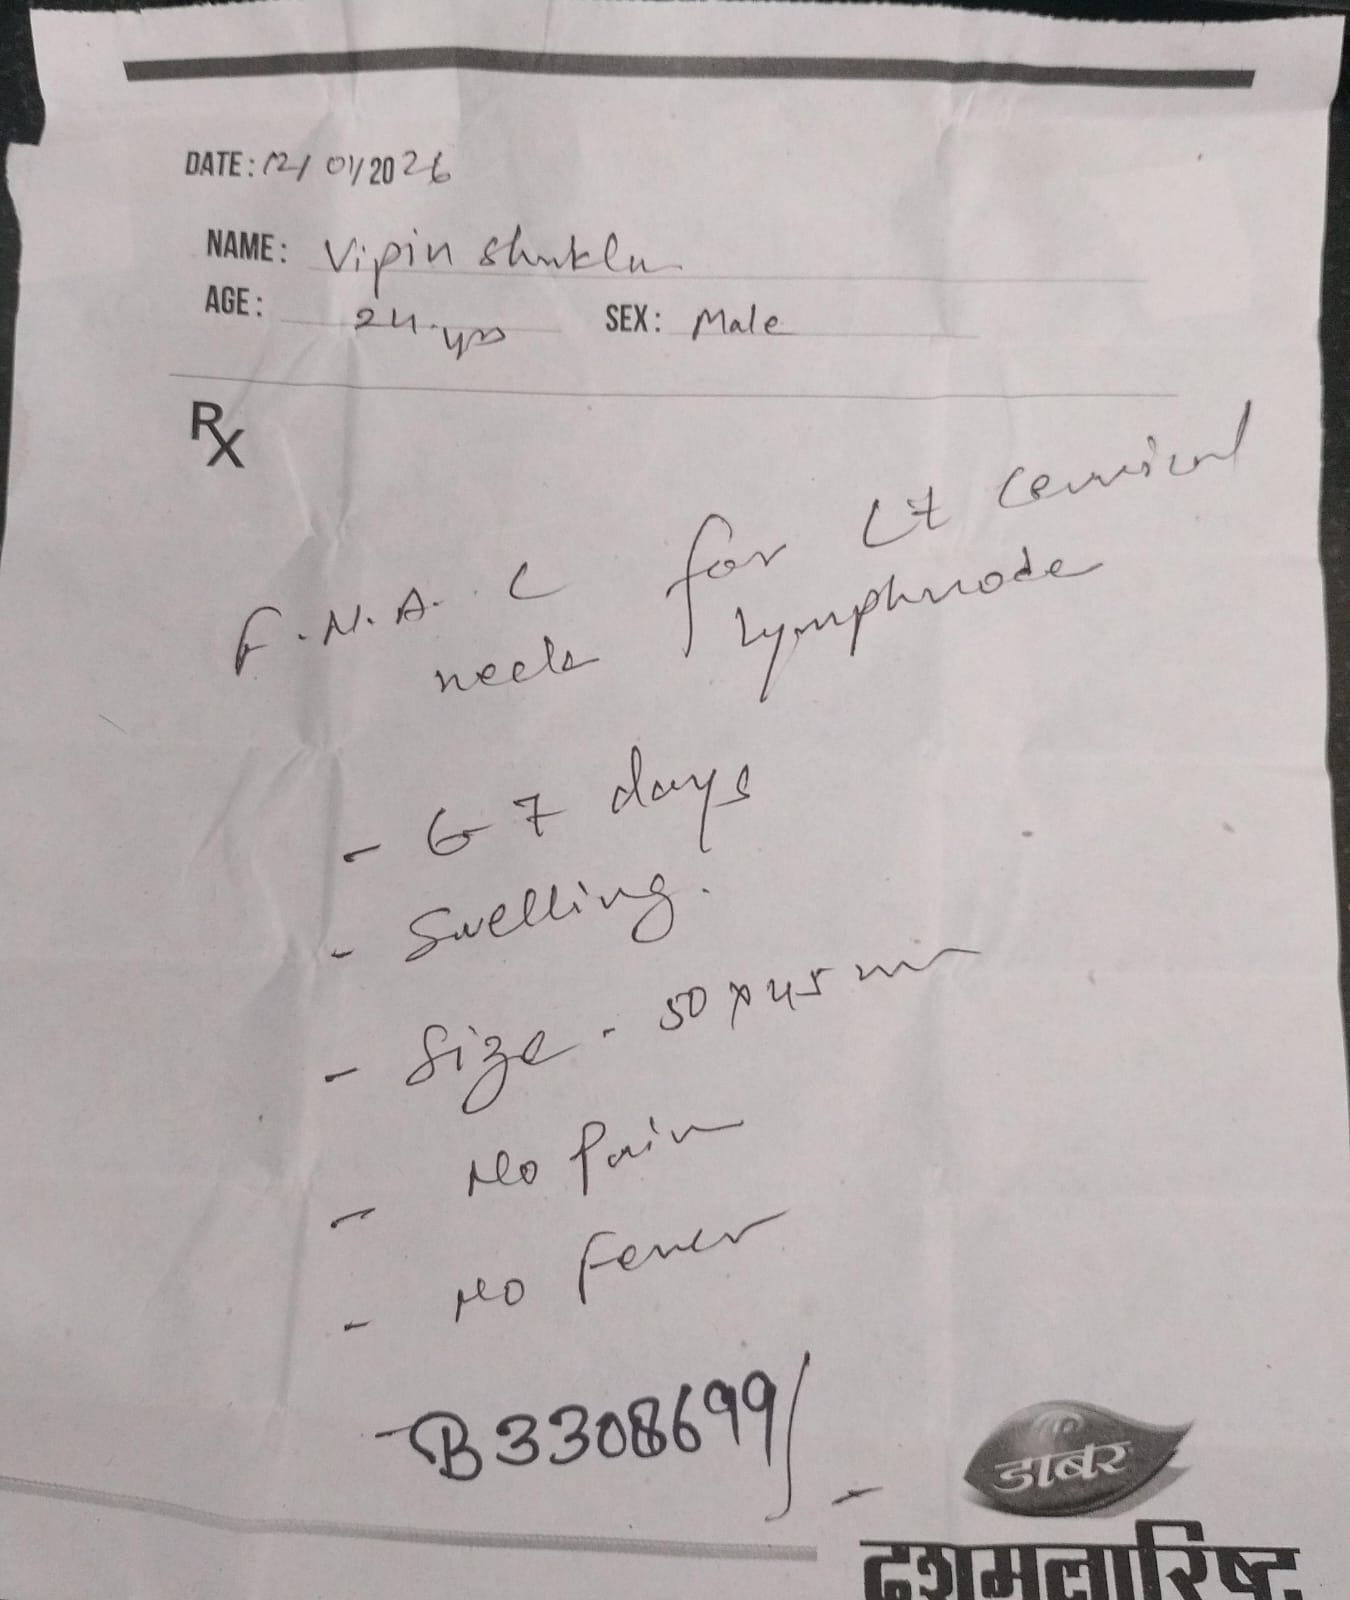 DATE: 12/01/2026
NAME: Vipin Shukla
AGE: 24 yrs SEX: Male
Rx
F.N.A.C for Lt Cervical
neck lymphnode
- 6 7 days
- Swelling.
- Size - 50 x 45 mm
- No Pain
- No Fever
- B3308699/-
डाबर
दशमूलारिष्ट